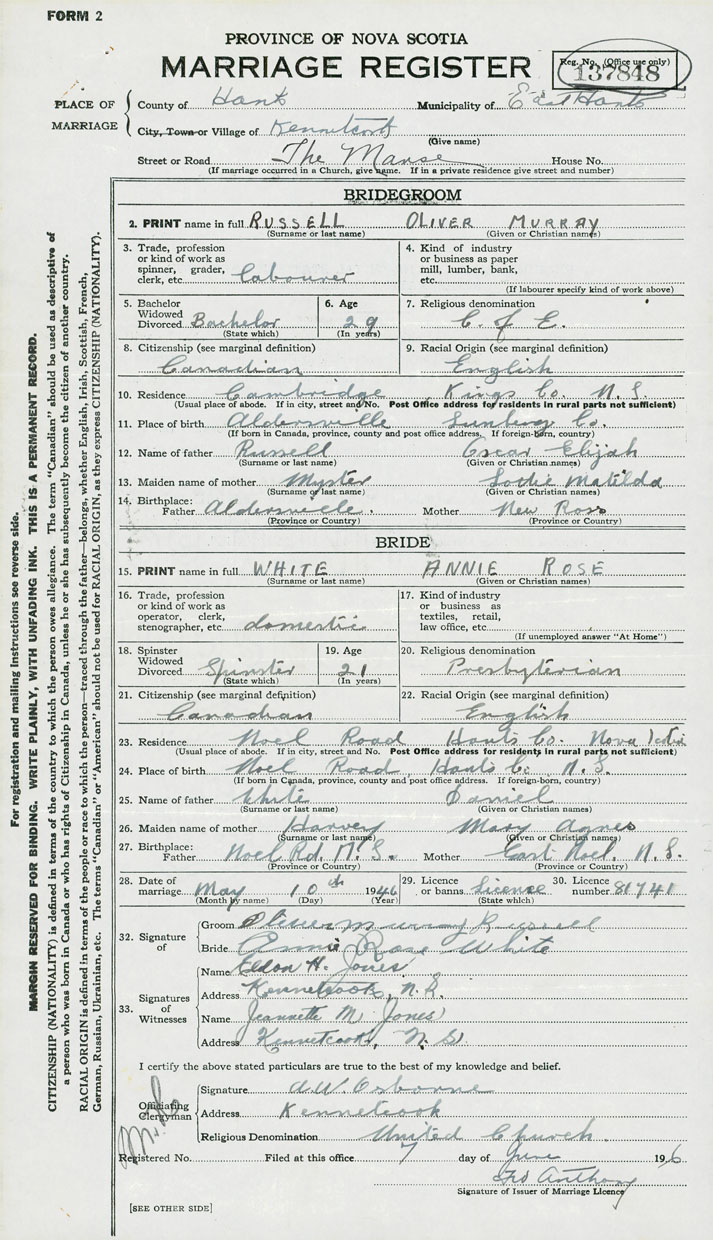 FORM 2
PROVINCE OF NOVA SCOTIA
MARRIAGE REGISTER
Reg. No. (Office use only)
137848
PLACE OF MARRIAGE
County of Hants Municipality of East Hants
City, Town or Village of Kennetcook
(Give name)
Street or Road The Manse House No.
(If marriage occurred in a Church, give name. If in a private residence give street and number)
BRIDEGROOM
2. PRINT name in full RUSSELL OLIVER MURRAY
(Surname or last name) (Given or Christian names)
3. Trade, profession or kind of work as spinner, grader, clerk, etc. labourer
4. Kind of industry or business as paper mill, lumber, bank, etc.
(If labourer specify kind of work above)
5. Bachelor Widowed Divorced Bachelor
(State which)
6. Age 29
(In years)
7. Religious denomination
C. of E.
8. Citizenship (see marginal definition)
Canadian
9. Racial Origin (see marginal definition)
English
10. Residence Cambridge Kings Co. N.S.
(Usual place of abode. If in city, street and No. Post Office address for residents in rural parts not sufficient)
11. Place of birth Aldersville Lunenburg Co.
(If born in Canada, province, county and post office address. If foreign-born, country)
12. Name of father Russell Oscar Elijah
(Surname or last name) (Given or Christian names)
13. Maiden name of mother Myster Matilda
(Surname or last name) (Given or Christian names)
14. Birthplace: Father Aldersville. Mother New Ross
(Province or Country) (Province or Country)
BRIDE
15. PRINT name in full WHITE ANNIE ROSE
(Surname or last name) (Given or Christian names)
16. Trade, profession or kind of work as operator, clerk, stenographer, etc. domestic
17. Kind of industry or business as textiles, retail, law office, etc.
(If unemployed answer "At Home")
18. Spinster Widowed Divorced Spinster
(State which)
19. Age 21
(In years)
20. Religious denomination
Presbyterian
21. Citizenship (see marginal definition)
Canadian
22. Racial Origin (see marginal definition)
English
23. Residence Noel Road Hants Co. Nova Scotia
(Usual place of abode. If in city, street and No. Post Office address for residents in rural parts not sufficient)
24. Place of birth Noel Road Hants Co. N.S.
(If born in Canada, province, county and post office address. If foreign-born, country)
25. Name of father White Daniel
(Surname or last name) (Given or Christian names)
26. Maiden name of mother Harvey Mary Agnes
(Surname or last name) (Given or Christian names)
27. Birthplace: Father Noel Rd. N.S. Mother East Noel, N.S.
(Province or Country) (Province or Country)
28. Date of marriage May 10th 1946
(Month by name) (Day) (Year)
29. Licence or banns License
(State which)
30. Licence number 81741
32. Signature of
Groom Oliver Murray Russell
Bride Annie Rose White
33. Signatures of Witnesses
Name Eldon H. Jones
Address Kennetcook, N.S.
Name Jeannette M. Jones
Address Kennetcook, N.S.
I certify the above stated particulars are true to the best of my knowledge and belief.
Officiating Clergyman
Signature A.W. Osborne
Address Kennetcook
Religious Denomination United Church.
Registered No. Filed at this office 7 day of June 1946
Anthony
Signature of Issuer of Marriage Licence
[SEE OTHER SIDE]
For registration and mailing instructions see reverse side.
MARGIN RESERVED FOR BINDING. WRITE PLAINLY, WITH UNFADING INK. THIS IS A PERMANENT RECORD.
CITIZENSHIP (NATIONALITY) is defined in terms of the country to which the person owes allegiance. The term "Canadian" should be used as descriptive of
a person who was born in Canada or who has rights of Citizenship in Canada, unless he or she has subsequently become the citizen of another country.
RACIAL ORIGIN is defined in terms of the people or race to which the person—traced through the father—belongs, whether English, Irish, Scottish, French,
German, Russian, Ukrainian, etc. The terms "Canadian" or "American" should not be used for RACIAL ORIGIN, as they express CITIZENSHIP (NATIONALITY).